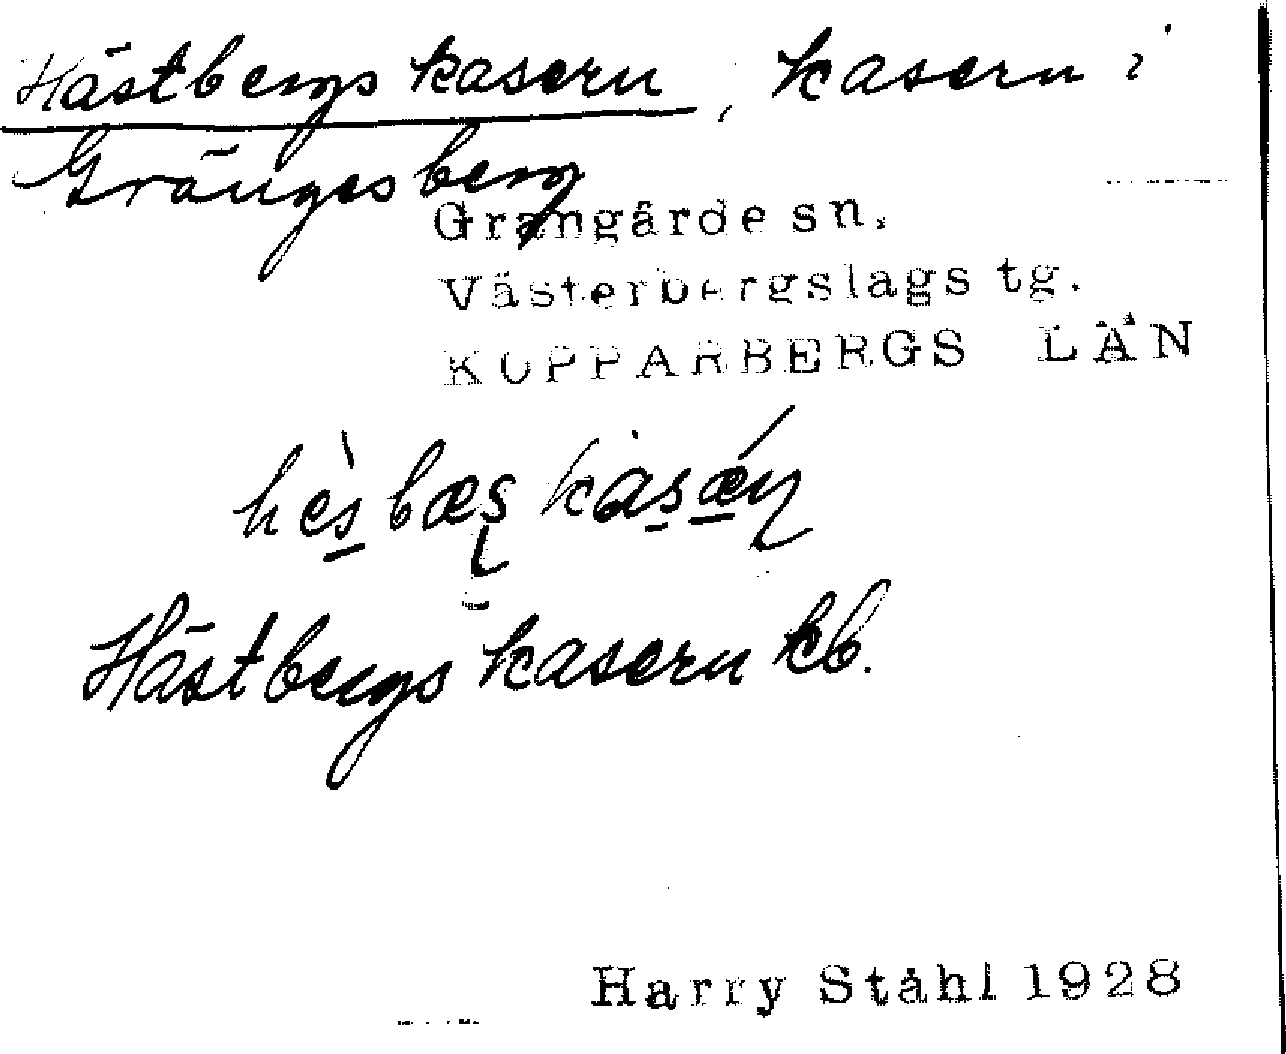 Hästbergs kasern, kasern i
Grängesberg
Grangärde sn.
Västerbergslags tg.
KOPPARBERGS LÄN
hès̱bæs̱ kas̱ǽ̱ɳ
Hästbergs kasern kb.
Harry Ståhl 1928